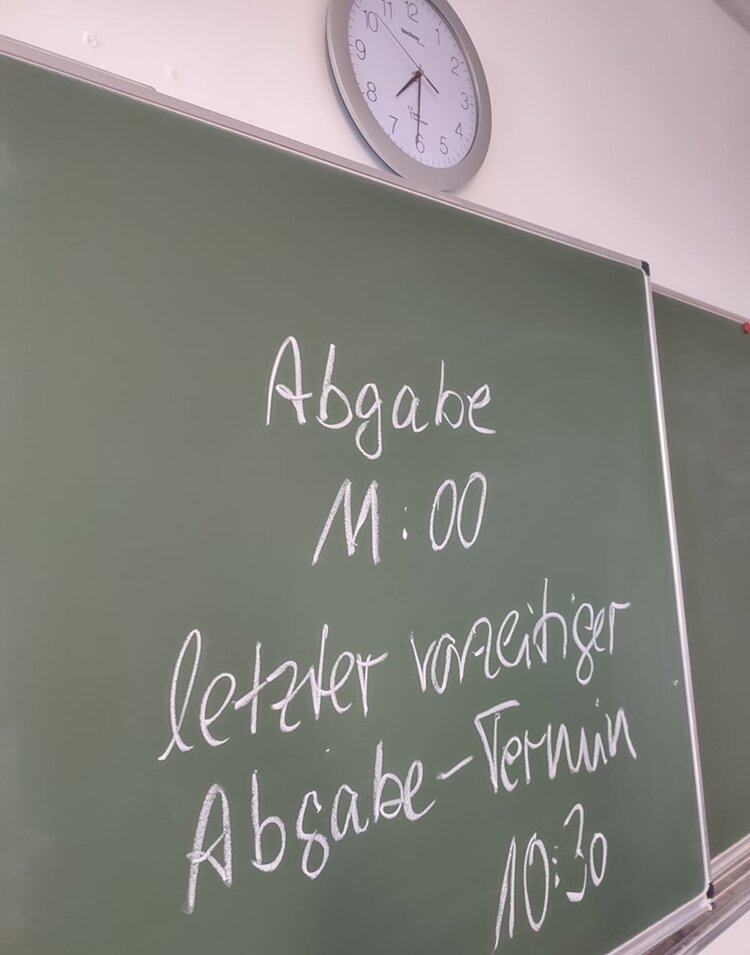 11 12 1
10 2
9 3
8 4
7 6 5
Abgabe
11:00
letzter vorzeitiger
Abgabe-Termin
10:30